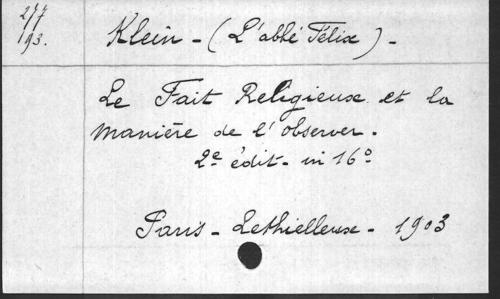 277
193.
Klein - (L'abbé Félix) -
Le Fait Religieux et la
manière de l'observer.
2e édit - in 16°
Paris - Lethielleux - 1903